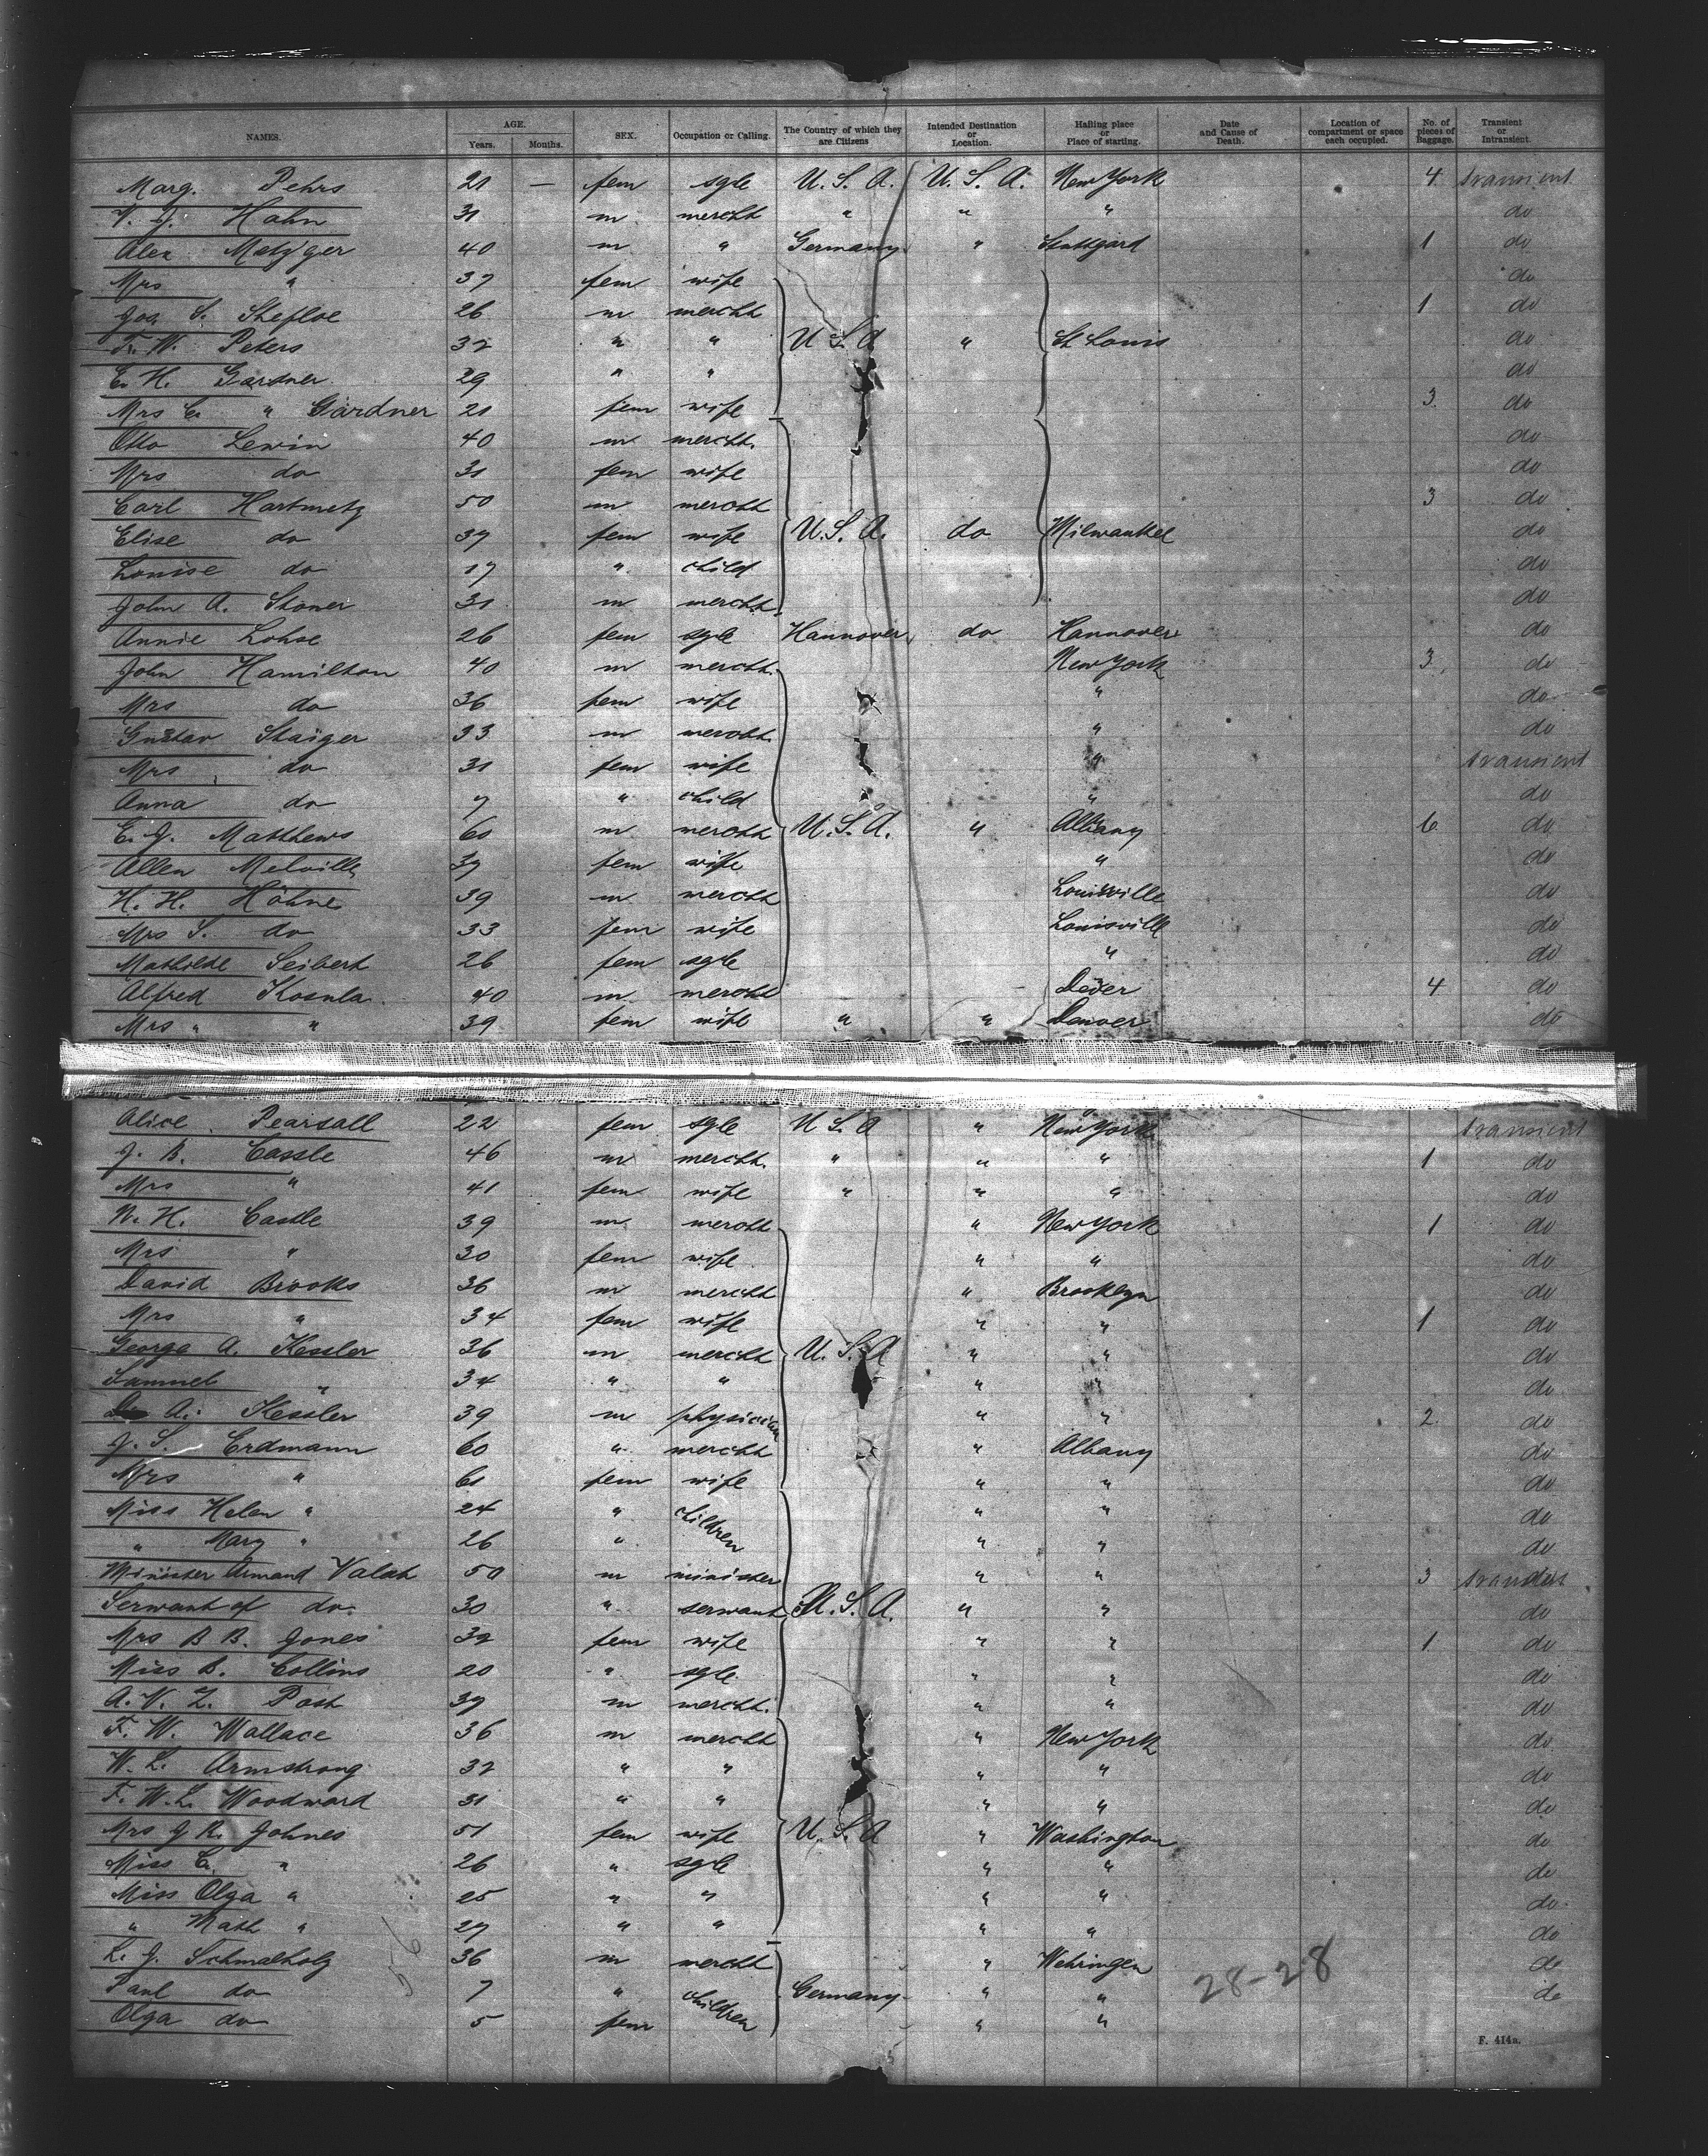 NAMES. AGE. Years. Months. SEX. Occupation or Calling. The Country of which they are Citizens Intended Destination or Location. Halting place or Place of starting. Date and Cause of Death. Location of compartment or space each occupied. No. of pieces of Baggage. Transient or Intransient.
Marg. Pehrs 21 — fem sgle U. S. A. U. S. A. New York 4 transient
V. J. Hahn 31 m mercht " " " do
Alex Metzger 40 m " Germany " Stuttgard 1 do
Mrs " 37 fem wife do
Jos. S. Shefloe 26 m mercht 1 do
Fr. W. Peters 32 " " U S. A " St Louis do
E. H. Gardner 29 " " do
Mrs E. " Gardner 21 fem wife 3 do
Otto Lewin 40 m mercht. do
Mrs do 31 fem wife do
Carl Hartmetz 50 m mercht 3 do
Elise do 37 fem wife U. S. A. do Milwaukee do
Louise do 17 " child do
John A. Stoner 31 m mercht do
Annie Lohse 26 fem sgle Hannover do Hannover do
John Hamilton 40 m mercht. New York 3 do
Mrs do 36 fem wife " do
Gustav Staiger 33 m mercht. " do
Mrs do 31 fem wife " transient
Anna do 7 " child " do
E. J. Matthews 60 m mercht U. S. A. " Albany 6 do
Allen Melville 37 fem wife " do
H. H. Höhne 39 m mercht Louisville do
Mrs S. do 33 fem wife Louisville do
Mathilde Seibert 26 fem sgle " do
Alfred Kosula 40 m mercht 4 do
Mrs " " 39 fem wife " " Denver do
Alice Pearsall 22 fem sgle U S. A " New York transient
J. B. Cassle 46 m mercht. " " " 1 do
Mrs " 41 fem wife " " " do
N. H. Castle 39 m mercht " New York 1 do
Mrs " 30 fem wife " " do
David Brooks 36 m mercht " Brooklyn do
Mrs " 34 fem wife " " 1 do
George A. Kessler 36 m mercht U. S. A " " do
Samuel " 34 " " " " do
A. Kessler 39 m physician " " 2 do
J. S. Erdmann 60 " mercht " Albany do
Mrs " 61 fem wife " " do
Miss Helen " 24 " children " " do
" Mary " 26 " " " do
Minister Armand Valak 50 m minister " " 3 transient
Servant of do. 30 " servant U. S. A. " " do
Mrs B B. Jones 32 fem wife " " 1 do
Miss B. Collins 20 " sgle " " do
A. V. Z. Post 37 m mercht. " " do
F. W. Wallace 36 m mercht " New York do
W. L. Armstrong 32 " " " " do
F. W. L. Woodward 31 " " " " do
Mrs J R. Johnes 51 fem wife U. S. A " Washington do
Miss C. " 26 " sgle " " do
Miss Olga " 25 " " " " do
" Math " 27 " " " " do
L. J. Schmalholz 36 m mercht " Wehringen do
Paul do 7 " children Germany " " do
Olga do 5 fem " "
28-28
F. 414a.